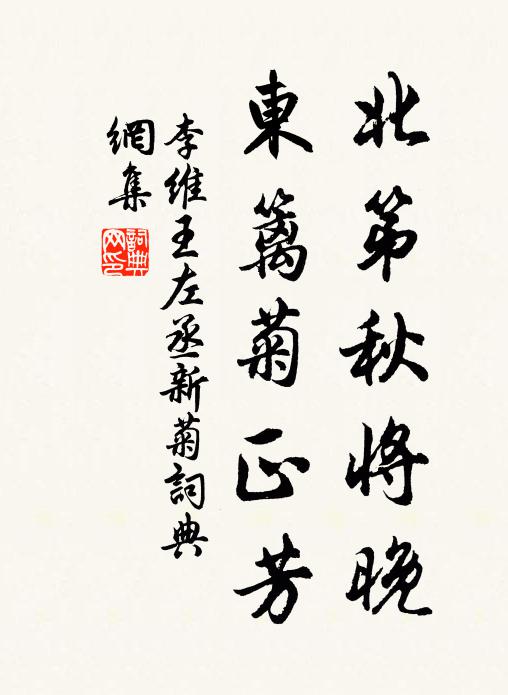 北第秋將晚
東籬菊正芳
李維王左丞新菊詞典
網集
詞典
网印